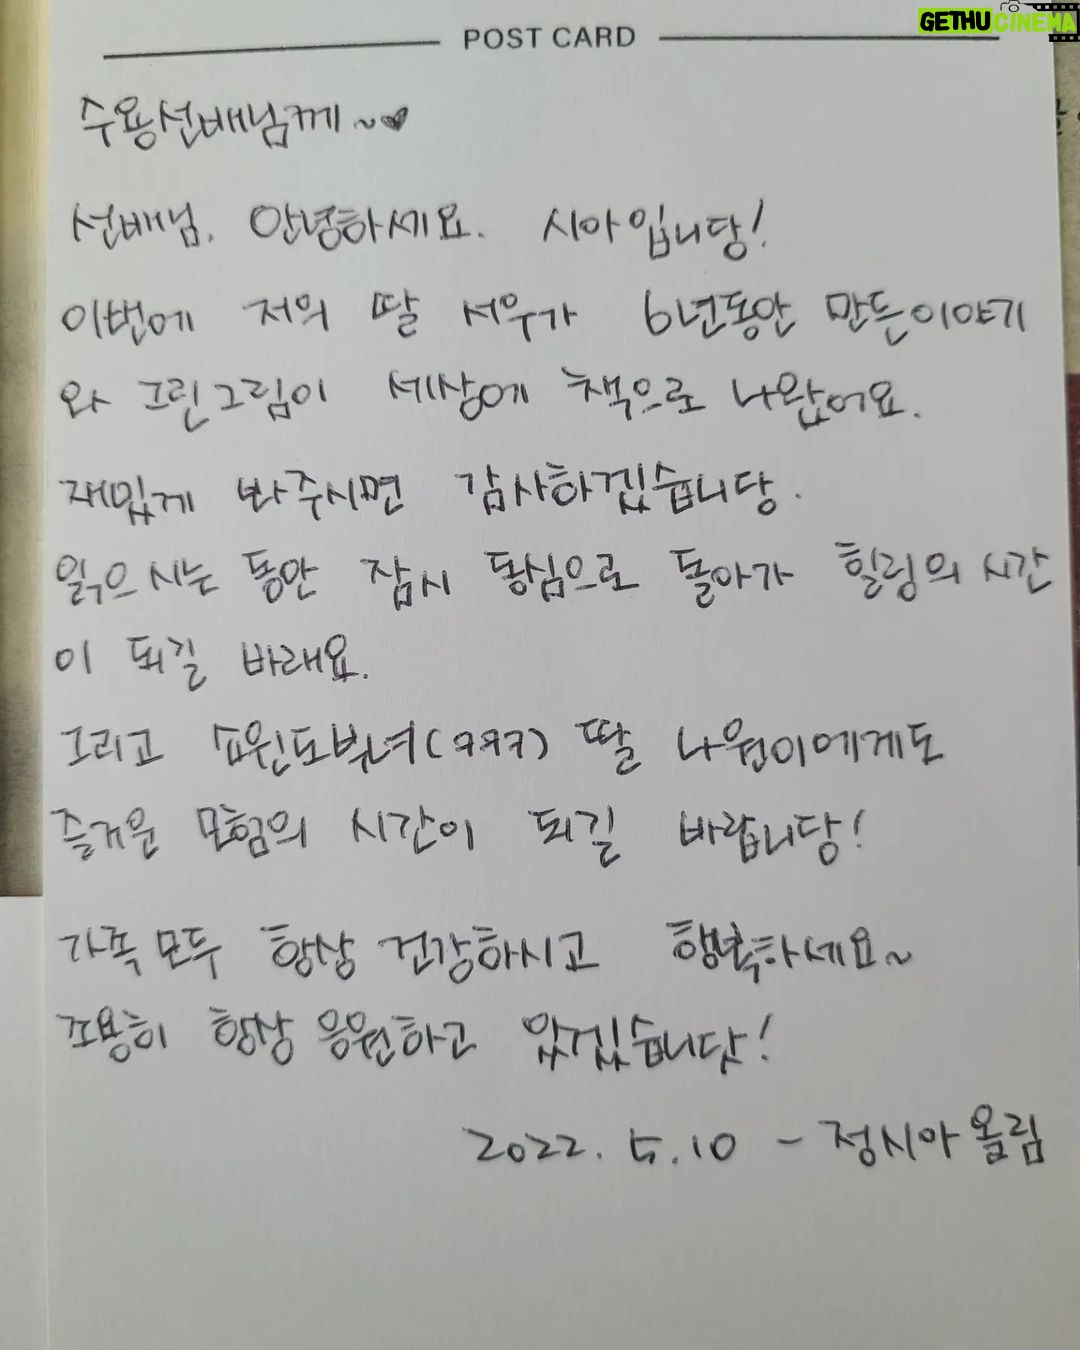 GETHUCINEMA
POST CARD
수용선배님께~♥
선배님. 안녕하세요. 시아입니당!
이번에 저의 딸 서우가 6년동안 만든이야기
와 그린그림이 세상에 책으로 나왔어요.
재밌게 봐주시면 감사하겠습니당.
읽으시는 동안 잠시 동심으로 돌아가 힐링의 시간
이 되길 바래요.
그리고 쇼윈도부녀(ㅋㅋㅋ) 딸 나원이에게도
즐거운 모험의 시간이 되길 바랍니당!
가족 모두 항상 건강하시고 행복하세요~
조용히 항상 응원하고 있겠습니닷!
2022. 5.10 - 정시아 올림